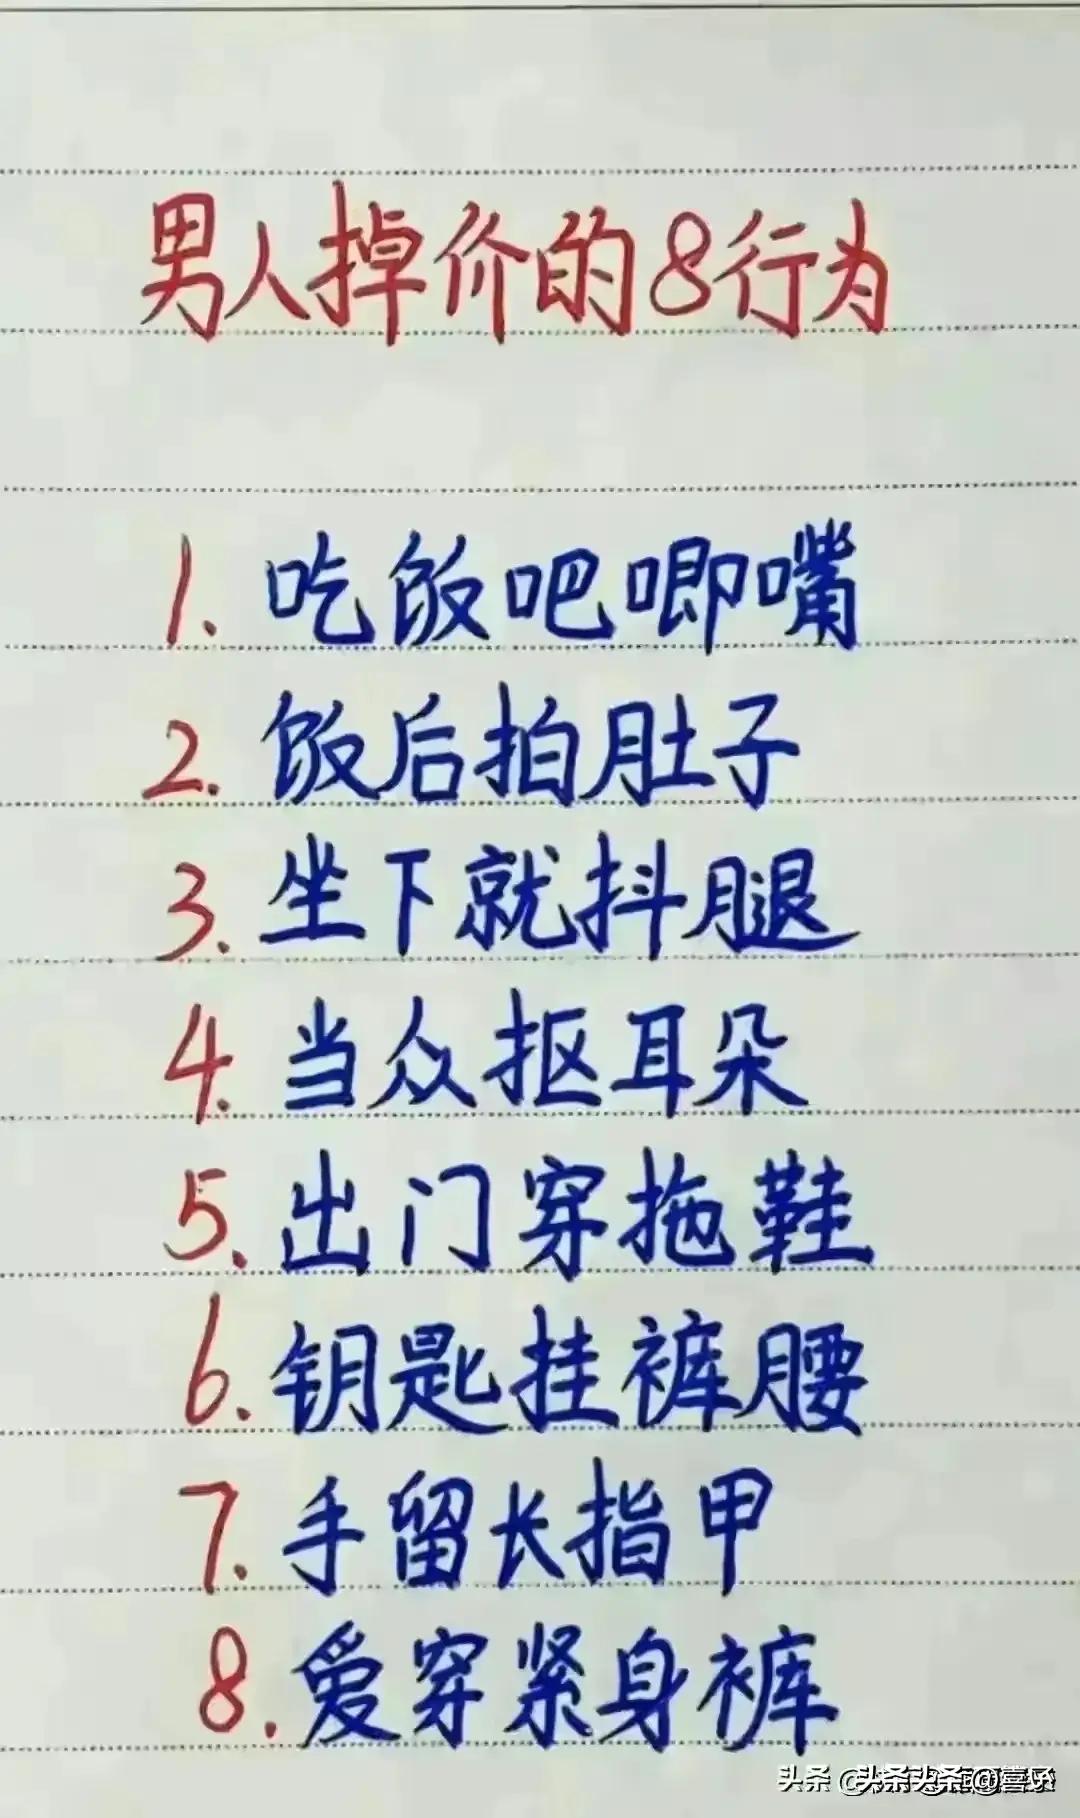 男人掉价的8行为
1. 吃饭吧唧嘴
2. 饭后拍肚子
3. 坐下就抖腿
4. 当众抠耳朵
5. 出门穿拖鞋
6. 钥匙挂裤腰
7. 手留长指甲
8. 爱穿紧身裤
头条 @头条头条@